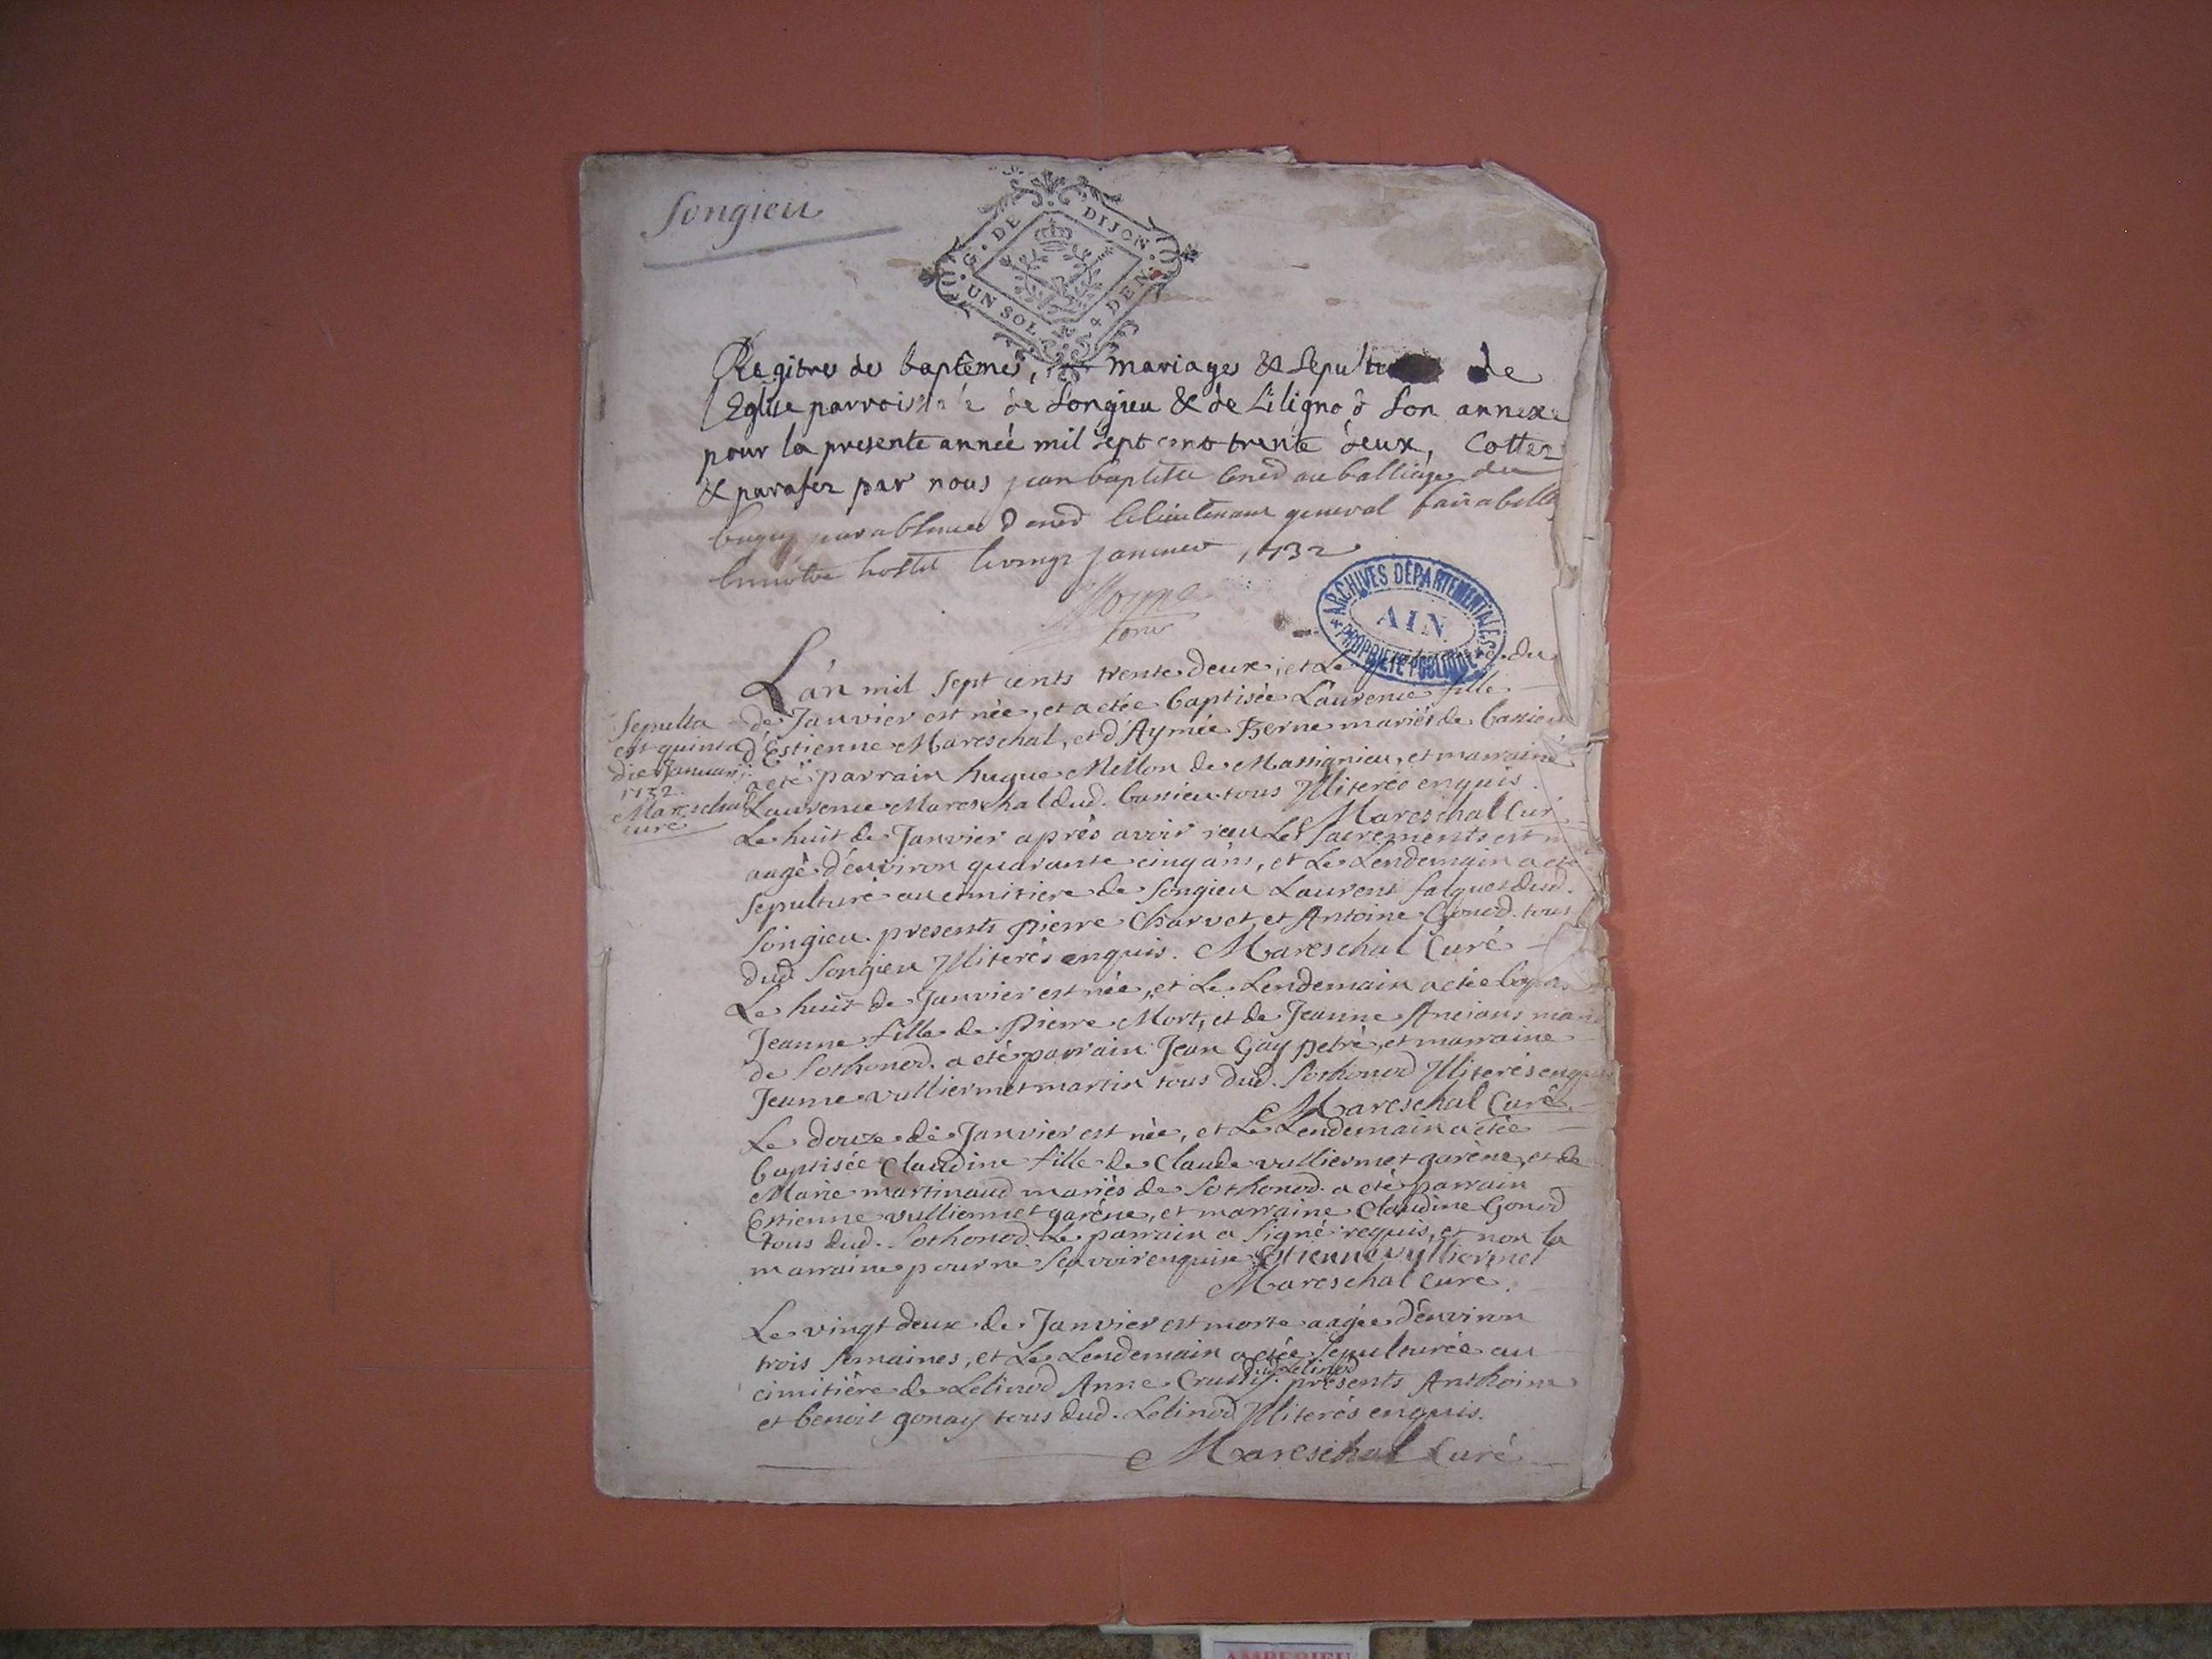 Songieu
G. DE DIJON.
UN SOL 4 DEN.
Regitre des baptêmes, mariages & Sepultu de
l'Eglise parroissiale de Songieu & de Liligno d son annexe
pour la presente année mil sept cent trente deux, Cottez
& parafez par nous jean baptiste au balliage du
bugey par absence le lieutenant general
en notre hostel le janvier 1732
ARCHIVES DÉPARTEMENTALES
AIN
PROPRIÉTÉ PUBLIQUE
L'an mil sept cents trente deux, et Le du
de Janvier est née, et a etée baptisée Laurence fille
d'Estienne Mareschal, et d'Aymée Berne mariés de bassieu
a eté parrain hugue Mellon de Massignieu, et marraine
Laurence Mareschal dud. bassieu tous Jlliterés enquis.
Mareschal Curé
Sepulta
est quinta
die Januarii
1732.
Mareschal
curé
Le huit de Janvier après avoir reçu Les sacrements est
aagé d'environ quarante cinq ans, et Le Lendemain a eté
sepulturé au cimitiere de Songieu Laurent falquet dud.
Songieu. presents Pierre Charvet, et Antoine Gonod. tous
dud Songieu Jlliterés enquis. Mareschal Curé
Le huit de Janvier est née, et Le Lendemain a etée
Jeanne fille de Pierre Mort, et de Jeanne Ancians
de Sothonod. a eté parrain Jean Gay petré, et marraine
Jeanne vulliermet martin tous dud. Sothonod Jlliterés enquis
Mareschal Curé.
Le douze de Janvier est née, et Le Lendemain a etée
baptisée Claudine fille de Claude vulliermet garène, et de
Marie martinaud mariés de Sothonod. a eté parrain
Estienne vulliermet garène, et marraine Claudine Gonod
tous dud. Sothonod. Le parrain a signé requis, et non la
marraine pour ne sçavoir enquise Estienne vulliermet
Mareschal curé.
Le vingt deux de Janvier est morte aagée d'environ
trois semaines, et Le Lendemain a etée sepulturée au
cimitière de Lelinod Anne dud Lelinod. présents Anthoine
et benoit gonay tous dud. Lelinod Jlliterés enquis.
Mareschal Curé